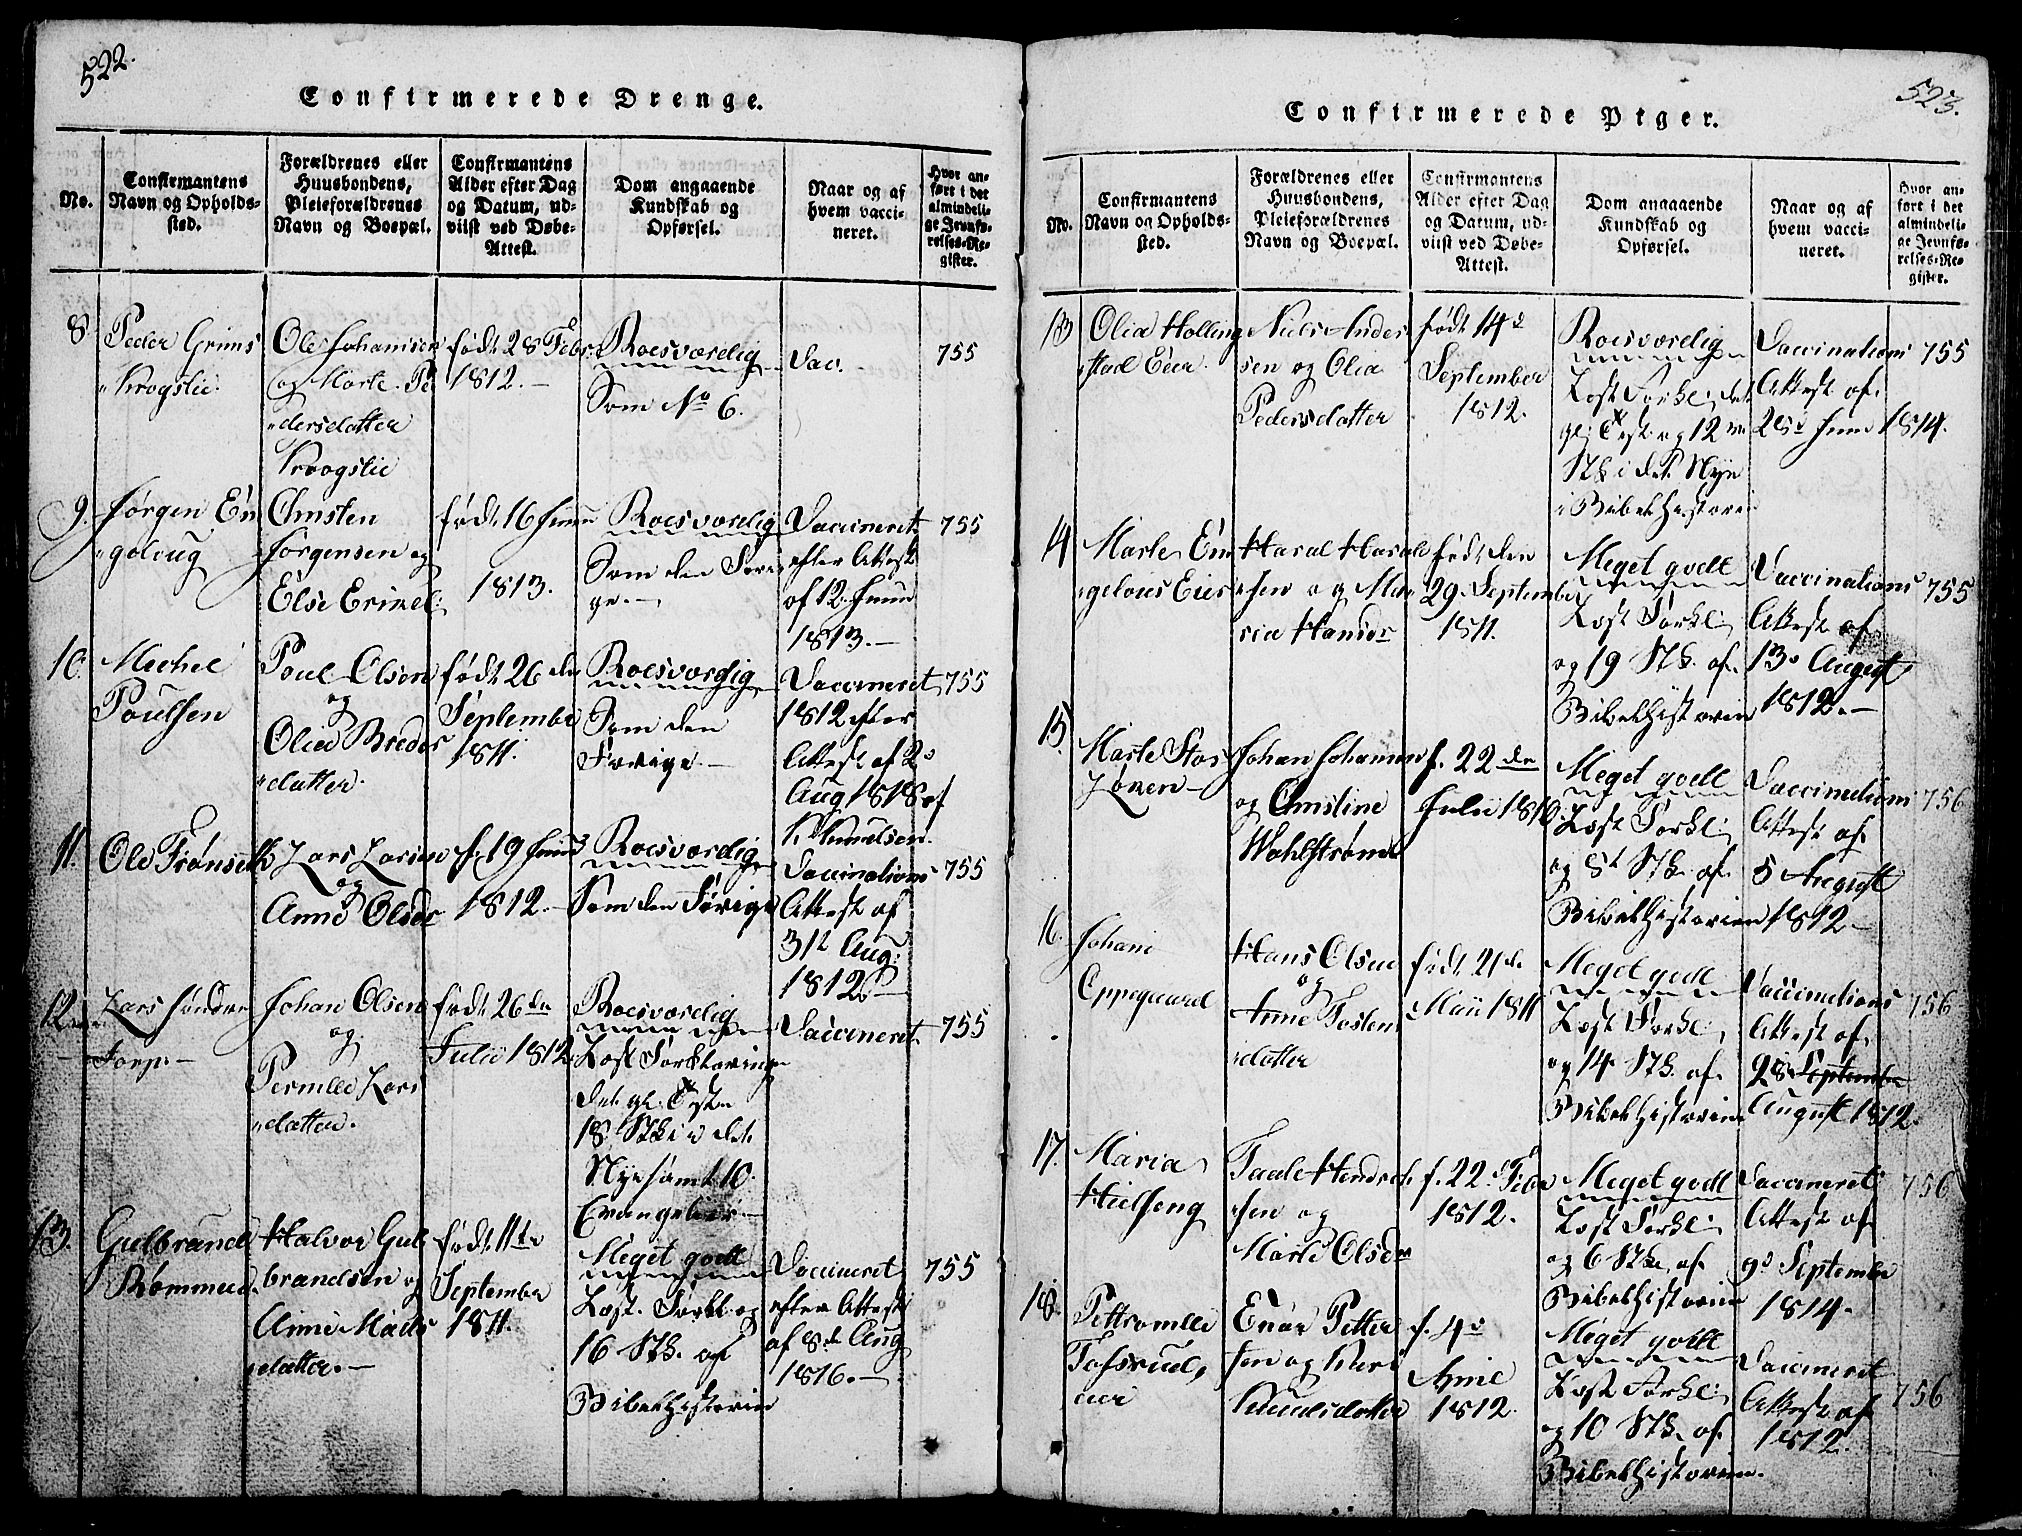 522.
Confirmerede Drenge.
No.
Confirmantens
Navn og Opholds-
sted.
Forældrenes eller
Huusbondens,
Pleieforældrenes
Navn og Boepæl.
Confirmantens
Alder efter Dag
og Datum, ud-
viist ved Døbe-
Attest.
Dom angaaende
Kundskab og
Opførsel.
Naar og af
hvem vacci-
neret.
Hvor an-
ført i det
almindeli-
ge Jevnfø-
relses-Re-
gister.
8
Peder Grims
Krogstie
Ole Johansen
og Marte Pe
dersdatter
Krogstie
født 28 Febr.
1812.
Roesværdig
Som No 6.
Vac.
755
9.
Jørgen En
golaug
Christen
Jørgensen og
Else Erixel:
født 16 Junii
1813.
Roesværdig
Som den Fori
ge.
Vaccineret
efter Attest
af 12. Junii
1813.
755
10.
Michel
Poulsen
Poul Olsen
og
Olea Breds
datter.
født 26 de
Septembr
1811.
Roesværdig
Som den
Forige.
Vaccineret
1812 efter
Attest af 2d
Aug 1818 af
K Knudsen.
755
11.
Ole Frønseth
Lars Larsen
og
Anne Olsdr
f. 19 Junii
1812.
Roesværdig
Som den Forige
Vaccinations
Attest af
31t Aug:
1812.
755
12.
Lars Søndre
Torp.
Johan Olsen
og
Pernille Lars
datter.
født 26 de
Julii 1812
Roesværdig
Læst Forklaring
det gl. Test.
18 Stk i det
Nye samt 10.
Evangelier
Vaccineret
755
13.
Gulbrand
Rømmen.
Halvor Gul
brandsen og
Anne Mads
datter.
født 11te
September
1811.
Meget godt
Læst. Forkl. og
16 Stk. af
Bibelhistorien
Vaccineret
efter Attest
af 8de Aug
1816.
755
523.
Confirmerede Piger.
No.
Confirmantens
Navn og Opholds-
sted.
Forældrenes eller
Huusbondens,
Pleieforældrenes
Navn og Boepæl.
Confirmantens
Alder efter Dag
og Datum, ud-
viist ved Døbe-
Attest.
Dom angaaende
Kundskab og
Opførsel.
Naar og af
hvem vacci-
neret.
Hvor an-
ført i det
almindeli-
ge Jevnfø-
relses-Re-
gister.
13
Olea Holling
stad Eier
Niels Ander
sen og Olia
Pedersdatter
født 14d
September
1812.
Roesværdig
Læst Forkl: det
gl: Test. og 12
Stk i det Nye
Bibelhistorien
Vaccinations
Attest af
28d Junii 1814.
755
14
Marte En
gelous Eier
Haral Haral
sen og Ma
ria Hansdr
født den
29. September
1811.
Meget godt
Læst Forkl:
og 19 Stk. af
Bibelhistorien
Vaccinations
Attest af
13d August
1812.
755
15.
Marte Stor
Løken
Johan Johannen
og Christine
Wahlstrøm
f. 22 de
Julii 1810
Meget godt
Læst Forkl:
og 8t Stk. af
Bibelhistorien
Vaccinations
Attest af
5 August
1812
756
16.
Johane
Eppegaard
Hans Olsen
og
Anne Tosten
datter
født 21d
Maii 1811
Meget godt
Læst Forkl:
og 14 Stk. af
Bibelhistorien
Vaccinations
Attest af
28 September
August 1812.
756
17.
Maria
Hielseng
Taale Hendrik
sen og
Marte Olsdr
f. 22. Febr
1812.
Meget godt
Læst Forkl:
og 6 Stk. af
Bibelhistorien
Vaccineret
Attest af
9d September
1814.
756
18.
Pettronille
Tofsrud,
eier
Enar Petter
sen og Kari
Knudsdatter
f. 4d
Apriil
1812.
Meget godt
Læst Forkl:
og 10 Stk. af
Bibelhistorien.
Vaccineret
Attest af
1812.
756